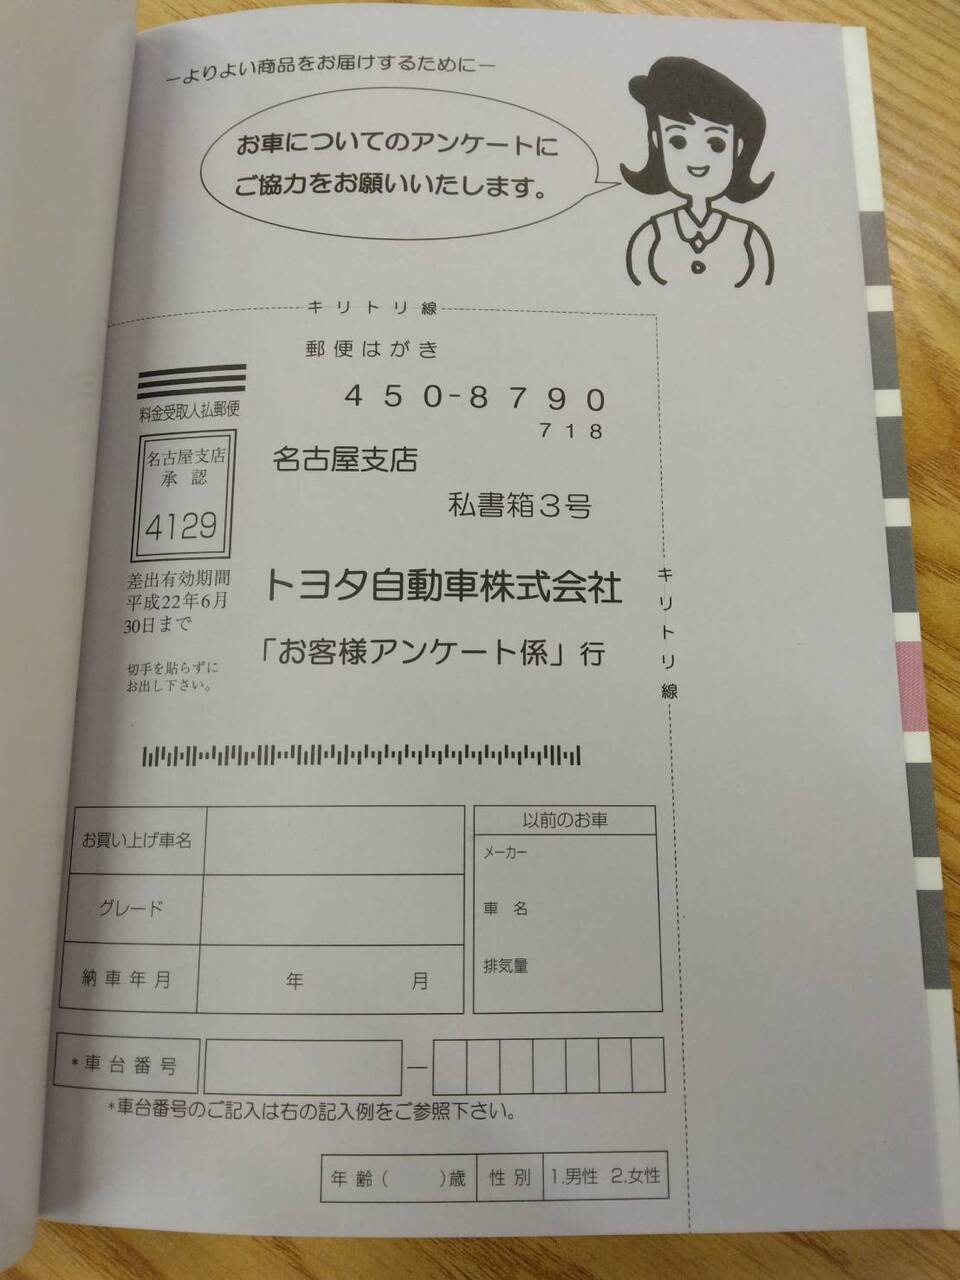 ーよりよい商品をお届けするためにー
お車についてのアンケートに
ご協力をお願いいたします。
キリトリ線
郵便はがき
450-8790
718
料金受取人払郵便
名古屋支店
承認
4129
差出有効期間
平成22年6月
30日まで
切手を貼らずに
お出し下さい。
名古屋支店
私書箱3号
トヨタ自動車株式会社
「お客様アンケート係」行
キリトリ線
お買い上げ車名
グレード
納車年月 年 月
以前のお車
メーカー
車名
排気量
*車台番号 ー
*車台番号のご記入は右の記入例をご参照下さい。
年齢( )歳 性別 1.男性 2.女性